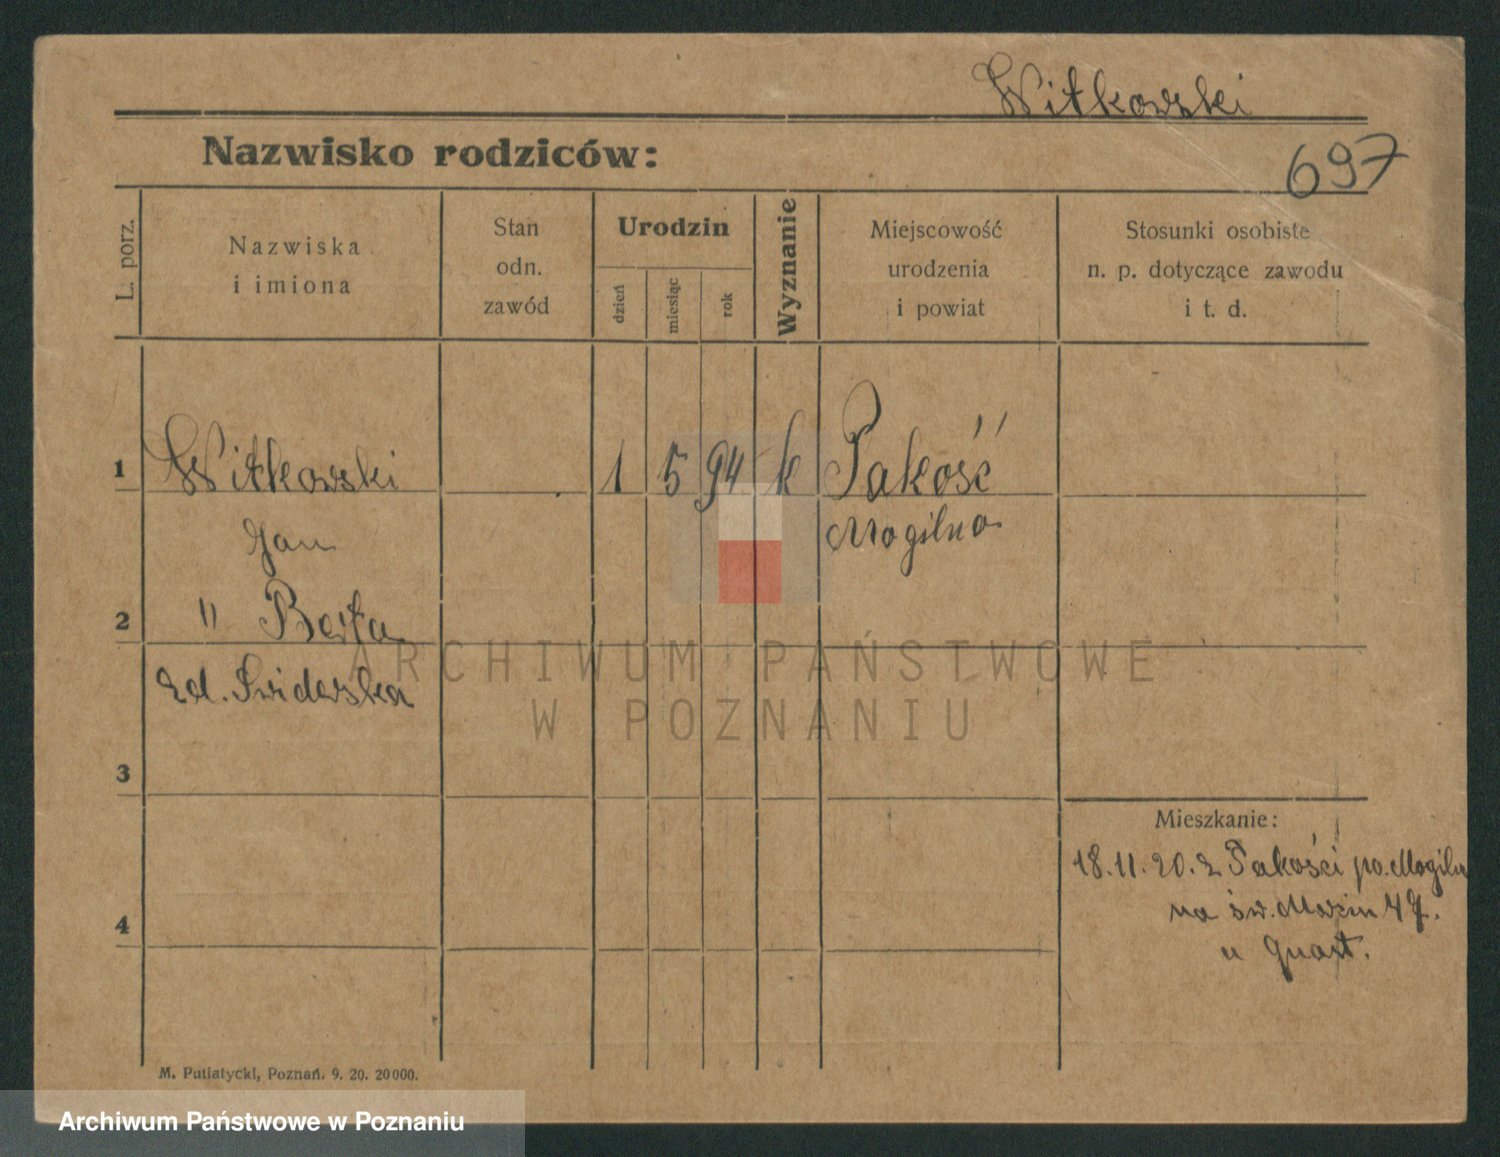 Witkowski
Nazwisko rodziców:
697
L. porz.
Nazwiska
i imiona
Stan
odn.
zawód
Urodzin
dzień
miesiąc
rok
Wyznanie
Miejscowość
urodzenia
i powiat
Stosunki osobiste
n. p. dotyczące zawodu
i t. d.
1 Witkowski 1 5 94 k Pakość
Jan Mogilno
2 " Berta
zd. Swiderska
3
4
Mieszkanie:
18.11.20. z Pakości po. Mogilno
na św. Marcin 47.
u Quast.
M. Putiatycki, Poznań. 9. 20. 20000.
ARCHIWUM PAŃSTWOWE
W POZNANIU
Archiwum Państwowe w Poznaniu